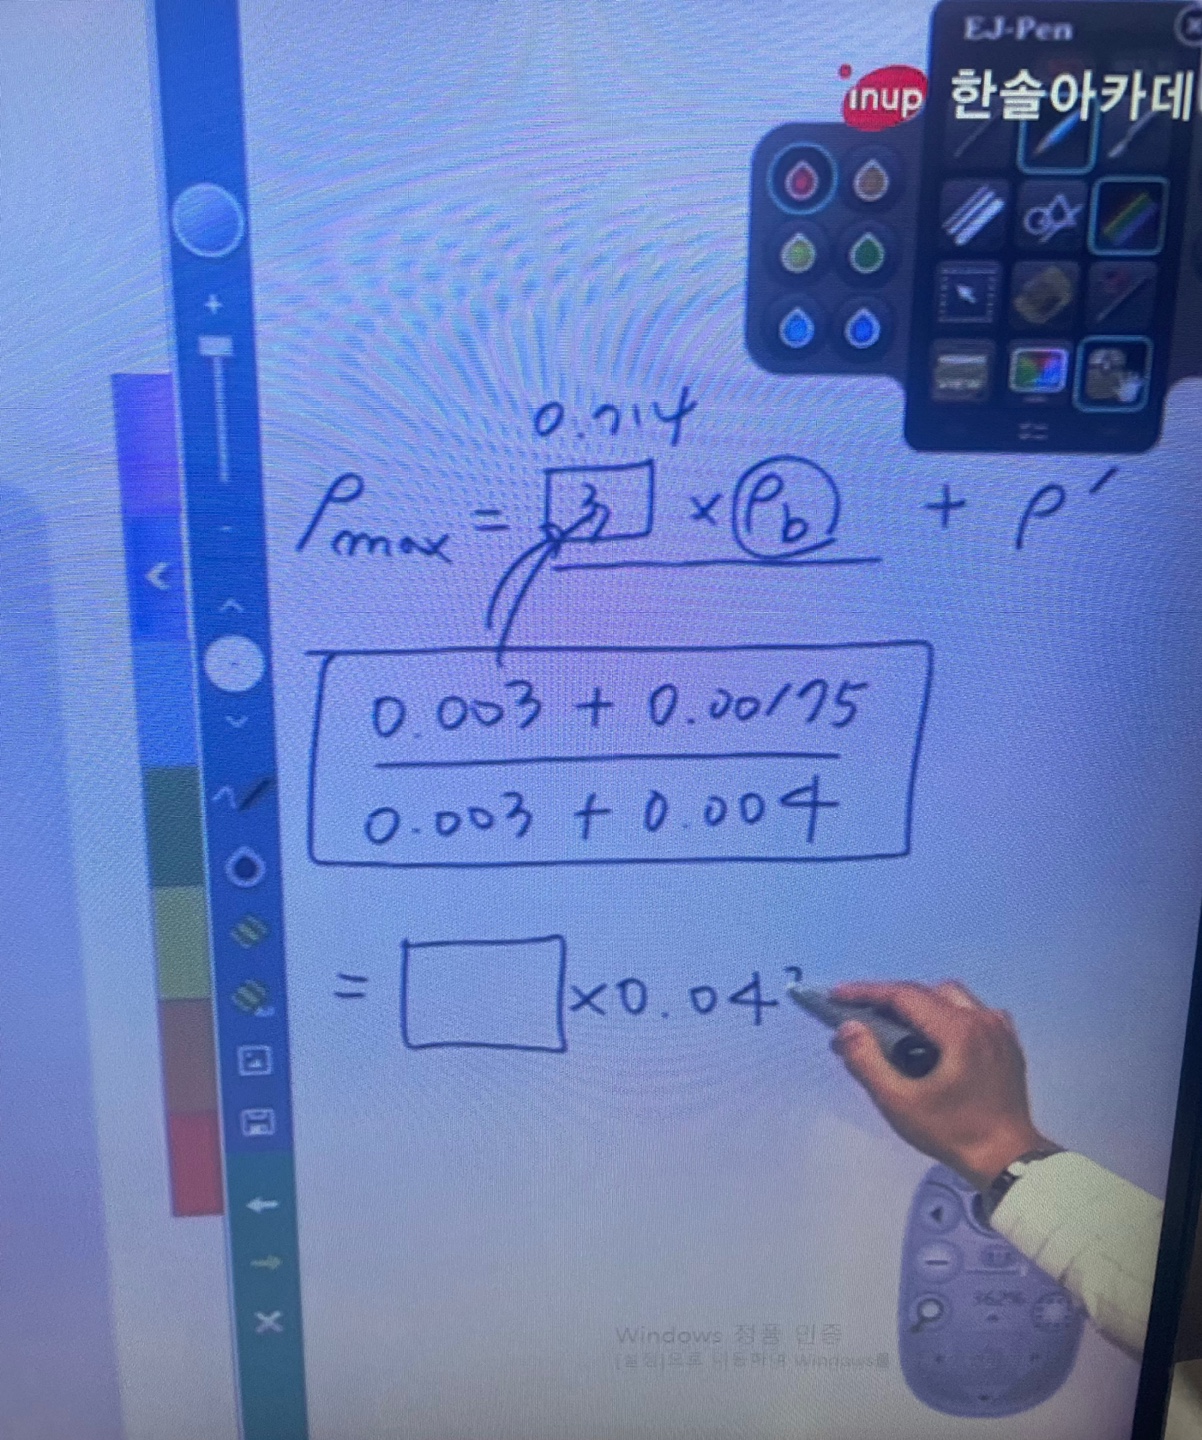 EJ-Pen
inup 한솔아카데
0.714
ρmax = 3 × ρb + ρ′
0.003 + 0.00175
0.003 + 0.004
= □ × 0.04
VIEW
362%
Windows 정품 인증